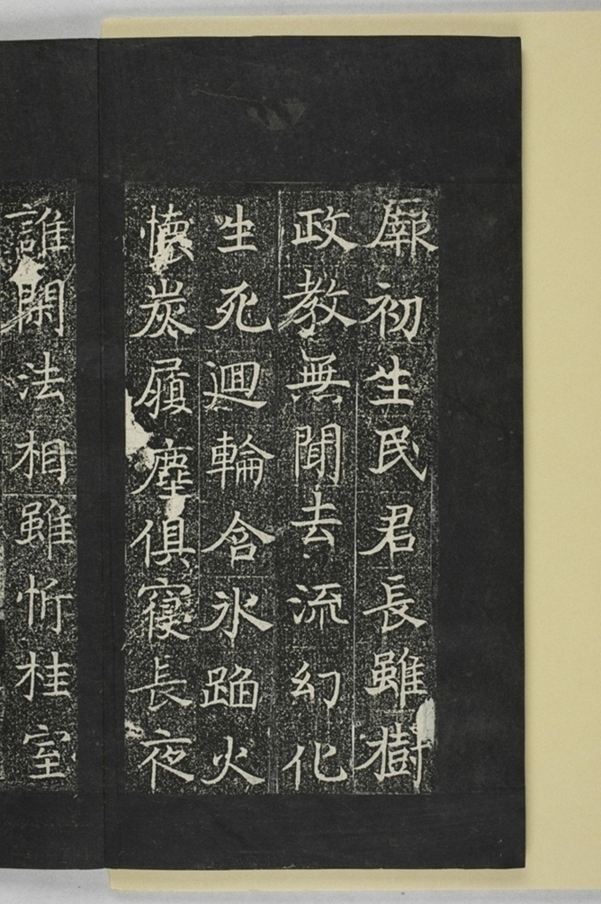 厥初生民君長雖樹
政教無聞去流幻化
生死迴輪含氷蹈火
懷炭履塵俱寑長夜
誰閑法相雖忻桂室